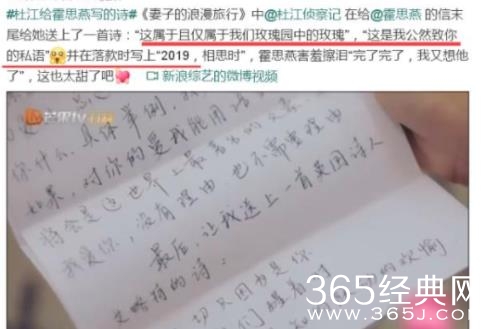 #杜江给霍思燕写的诗#《妻子的浪漫旅行》中@杜江侦察记 在给@霍思燕 的信末
尾给她送上了一首诗：“这属于且仅属于我们玫瑰园中的玫瑰”，“这是我公然致你
的私语”并在落款时写上“2019，相思时”，霍思燕害羞擦泪“完了完了，我又想他
了”，这也太甜了吧 新浪综艺的微博视频
芒果tv
你什么，具体举例，我
如果，对你的爱我能用语
将会是这世界上最
我爱你，没有理由，也不需要理由
最后，让我送上一首英国诗人
艾略特的诗：
一切只因为是你
们醒着时
的欢愉
365经典网
www.365J.com